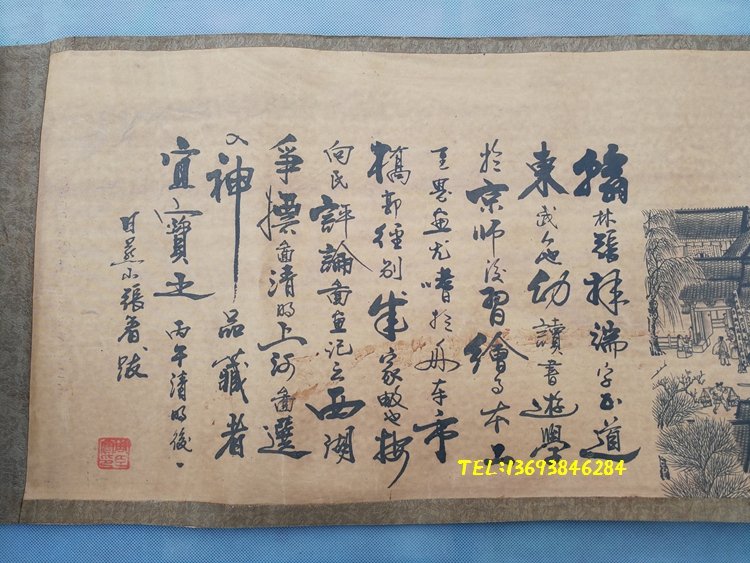 翰林張擇端字正道
東武人也幼讀書遊學
於京師後習繪事本工
其界畫尤嗜於舟車市
橋郭徑別成家數也按
向氏評論圖畫記云西湖
爭標圖清明上河圖選
入神品藏者
宜寶之丙午清明後一
日燕山張著跋
TEL:13693846284